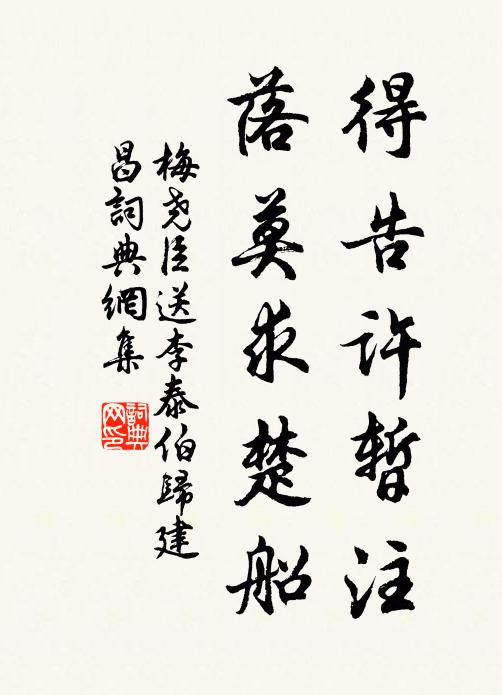 得告許暫注
落莫求楚船
梅尧臣送李泰伯歸建
昌詞典網集
詞典
网印